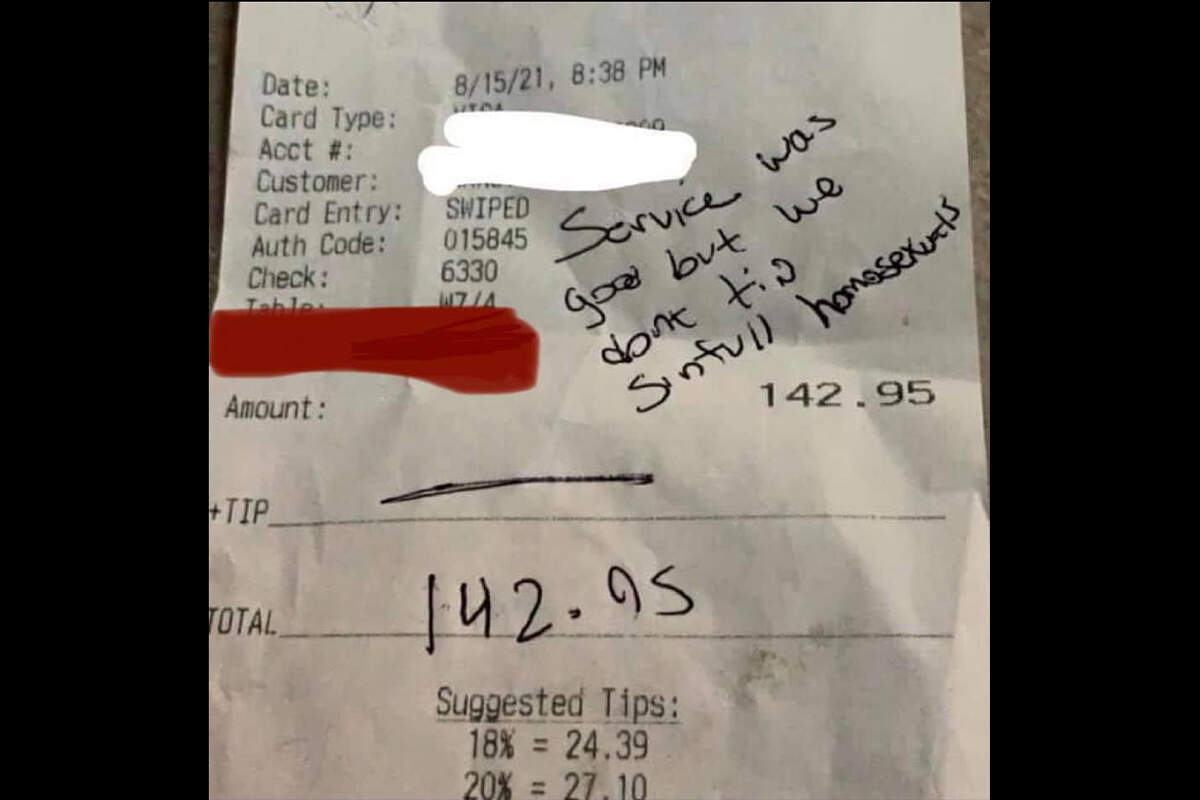 Date: 8/15/21, 8:38 PM
Card Type: VISA
Acct #:
Customer:
Card Entry: SWIPED
Auth Code: 015845
Check: 6330
Table: W7/4
Service was
good but we
dont tip
Sinfull homosexuals
Amount: 142.95
+TIP
TOTAL 142.95
Suggested Tips:
18% = 24.39
20% = 27.10